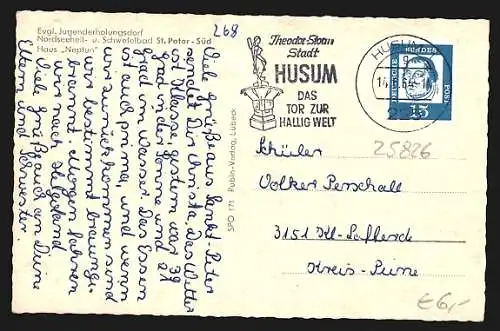 Evgl. Jugenderholungsdorf
Nordseeheil- u. Schwefelbad St. Peter - Süd
Haus „Neptun"
268
Viele Grüße aus Sankt-Peter
sendet Dir Christa. Das Wetter
ist Klasse, gestern war 39
grad in der Sonne und 21
grad im Wasser. Das Essen
ist auch prima, und wenn
wir zurück kommen sind
wir bestimmt braunge-
brannt. Morgen fahren
wir nach Helgoland.
Viele Grüße auch an Deine
Eltern und Schwester.
SPO 171 Rubin-Verlag, Lübeck
Theodor-Storm
Stadt
HUSUM
DAS
TOR ZUR
HALLIG WELT
HUSUM
14.
DEUTSCHE
BUNDES
POST
15
25826
Schüler
Volker Perschall
3151 Kl-Lafferde
Kreis-Peine
€6,-